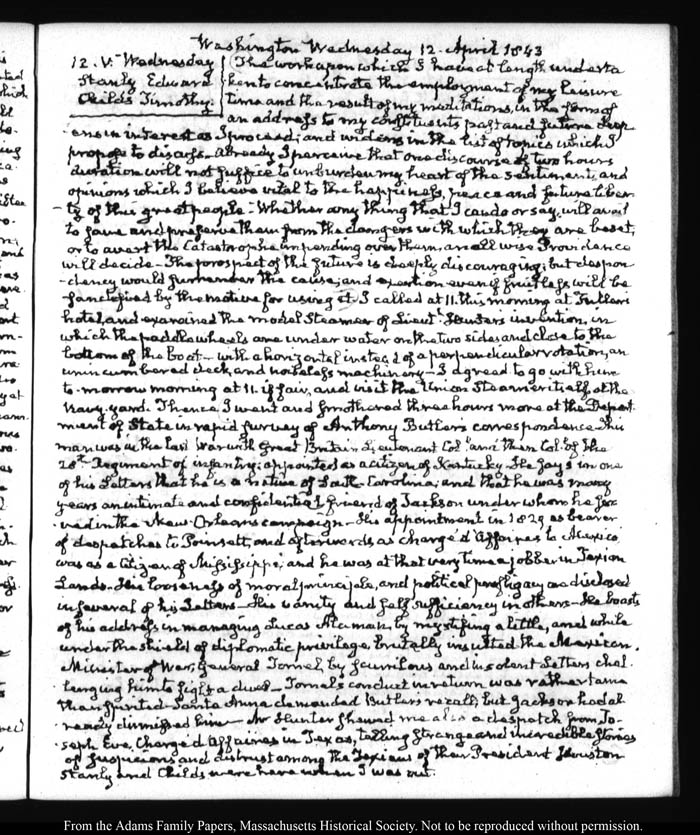 Washington Wednesday 12. April 1843
12. V. Wednesday
Stanly Edward
Childs Timothy.
The work upon which I have at length underta
ken to concentrate the employment of my leisure
time and the result of my meditations, in the form of
an address to my constituents past and future deep
ens in interest as I proceed; and widens in the list of topics which I
propose to discuss. Already I perceive that one discourse of two hours
duration will not suffice to unburden my heart of the sentiments and
opinions which I believe vital to the happiness, peace and future liber
ty of this great people. Whether any thing that I can do or say, will avail
to save and preserve them from the dangers with which they are beset,
or to avert the Catastrophe impending over them, an all wise Providence
will decide. The prospect of the future is deeply discouraging; but despon
dency would surrender the cause, and exertion even if fruitless will be
sanctified by the motive for using it. I called at 11. this morning at Fuller's
hotel, and examined the model Steamer of Lieut. Hunter's invention, in
which the paddle wheels are under water on the two sides and close to the
bottom of the boat — with a horizontal instead of a perpendicular rotation, an
unincumbered deck, and noiseless machinery — I agreed to go with him
to-morrow morning at 11. if fair, and visit the Union Steamer itself at the
Navy-yard. Thence I went and smothered three hours more at the Depart
ment of State in rapid survey of Anthony Butler's correspondence. This
man was in the last War with Great Britain Lieutenant Col. and then Col. of the
28th Regiment of infantry; appointed as a citizen of Kentucky. He says in one
of his Letters that he is a native of South-Carolina, and that he was many
years an intimate and confidential friend of Jackson under whom he ser
ved in the New-Orleans campaign — His appointment in 1829 as bearer
of despatches to Poinsett, and afterwards as chargé d'Affaires to Mexico
was as a Citizen of Mississippi, and he was at that very time a jobber in Texian
Lands. His looseness of moral principle, and political profligacy are disclosed
in several of his Letters — His vanity and self sufficiency in others — He boasts
of his address in managing Lucas Alaman, by mystifing a little, and while
under the shield of diplomatic privilege, brutally insulted the Mexican
Minister of War, General Tornel, by scurrilous and insolent Letters chal
lenging him to fight a duel — Tornel's conduct in return was rather tame
than spirited. Santa Anna demanded Butler's recall, but Jackson had al
ready dismissed him — Mr Hunter shewed me also a despatch from Jo
seph Eve, Chargé d'Affaires in Texas, telling strange and incredible stories
of suspicions and distrust among the Texians of their President Houston
Stanly and Childs were here when I was out.
From the Adams Family Papers, Massachusetts Historical Society. Not to be reproduced without permission.